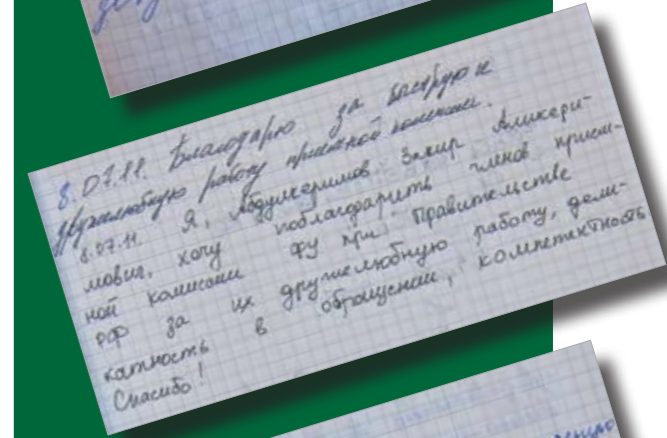 8.07.11. Благодарю за быструю и
дружелюбную работу приемной комиссии.
8.07.11. Я, Абдулкеримов Закир Аликери-
мович, хочу поблагодарить членов прием-
ной комиссии ФУ при Правительстве
РФ за их дружелюбную работу, дели-
катность в обращении, компетентность.
Спасибо!